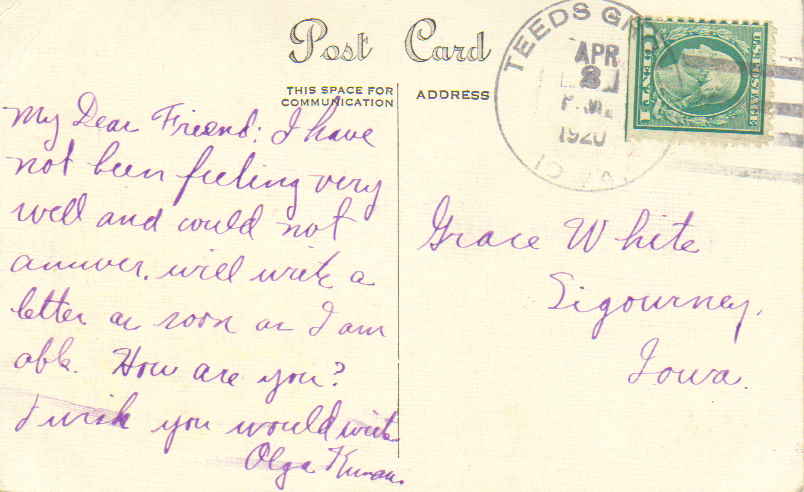 Post Card
THIS SPACE FOR
COMMUNICATION
ADDRESS
TEEDS GR
APR
1920
My Dear Friend: I have
not been feeling very
well and could not
answer. will write a
letter as soon as I am
able. How are you?
I wish you would write
Olga
Grace White
Sigourney,
Iowa.